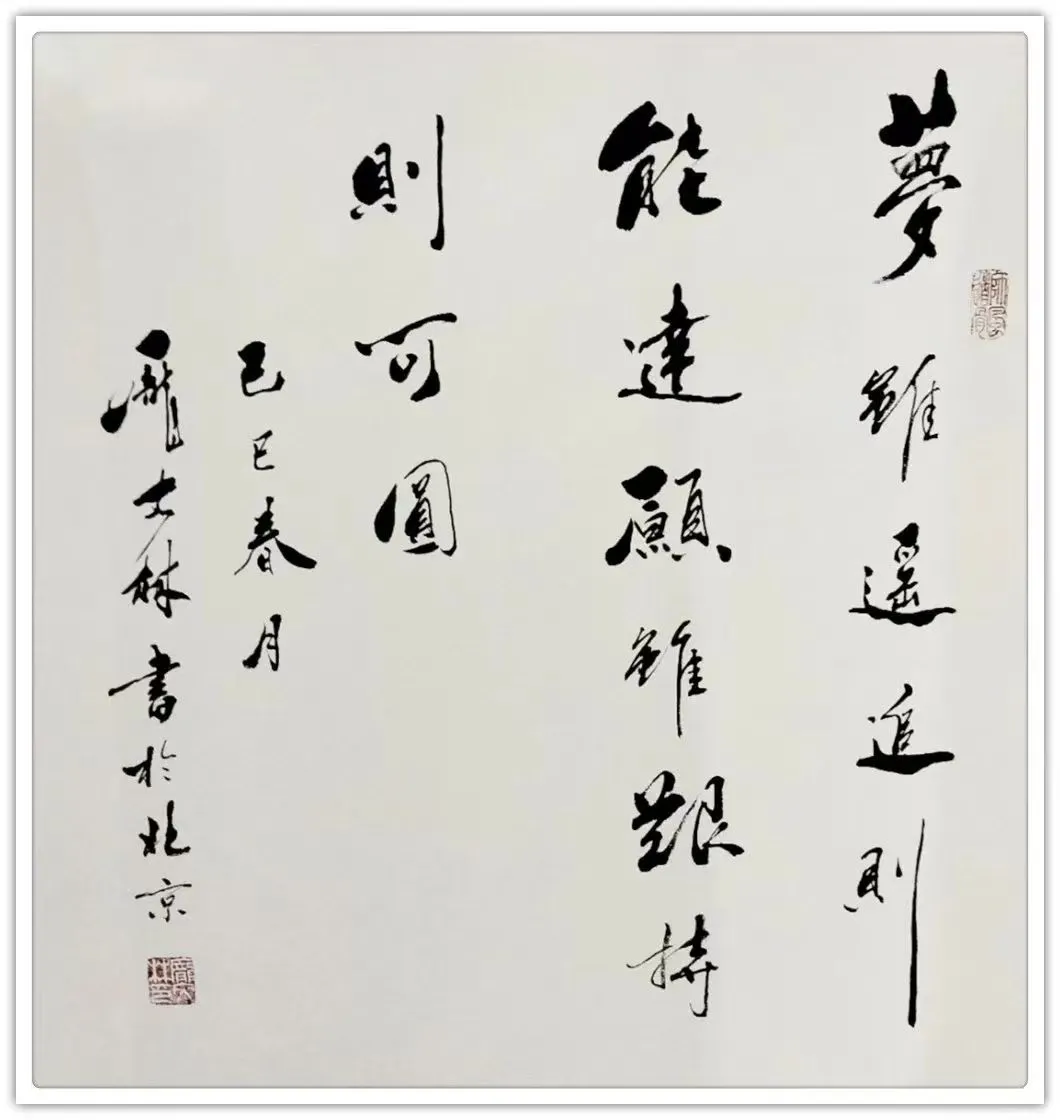 夢雖遥追則
能達願雖艱持
則可圓
己巳春月
龐林書於北京